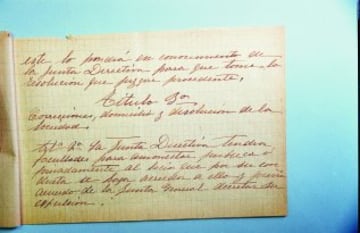 este lo pondrá en conocimiento de
la junta Directiva para que tome la
resolucion que juzgue procedente.
Título 3º
Correcciones, domicilio y disolucion de la
sociedad.
Art.º La Junta Directiva tendra
facultades para amonestar publica ó
privadamente al socio que por su con
ducta se haga acredor a ello y previo
acuerdo de la Junta General decretar su
expulsion.